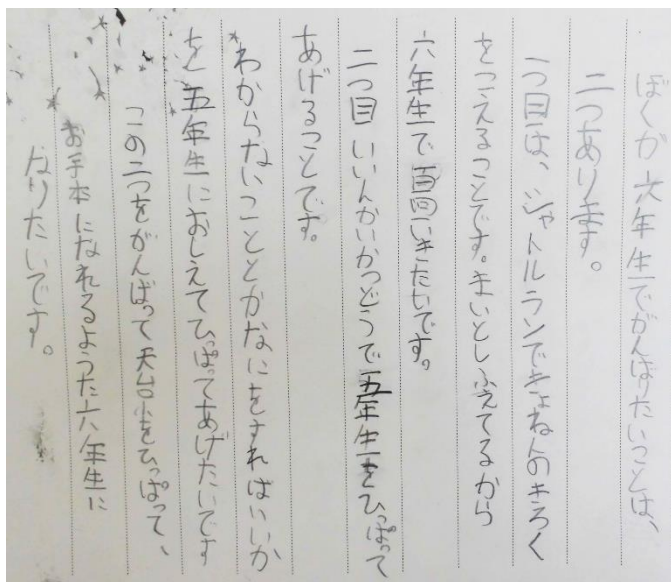 ぼくが六年生でがんばりたいことは、
二つあります。
一つ目は、シャトルランできょねんのきろく
をこえることです。まいとしふえてるから
六年生で百回いきたいです。
二つ目いいんかいかつどうで五年生をひっぱって
あげることです。
わからないこととかなにをすればいいか
を五年生におしえてひっぱてあげたいです
この二つをがんばって天台小をひっぱって、
お手本になれるようた六年生に
なりたいです。